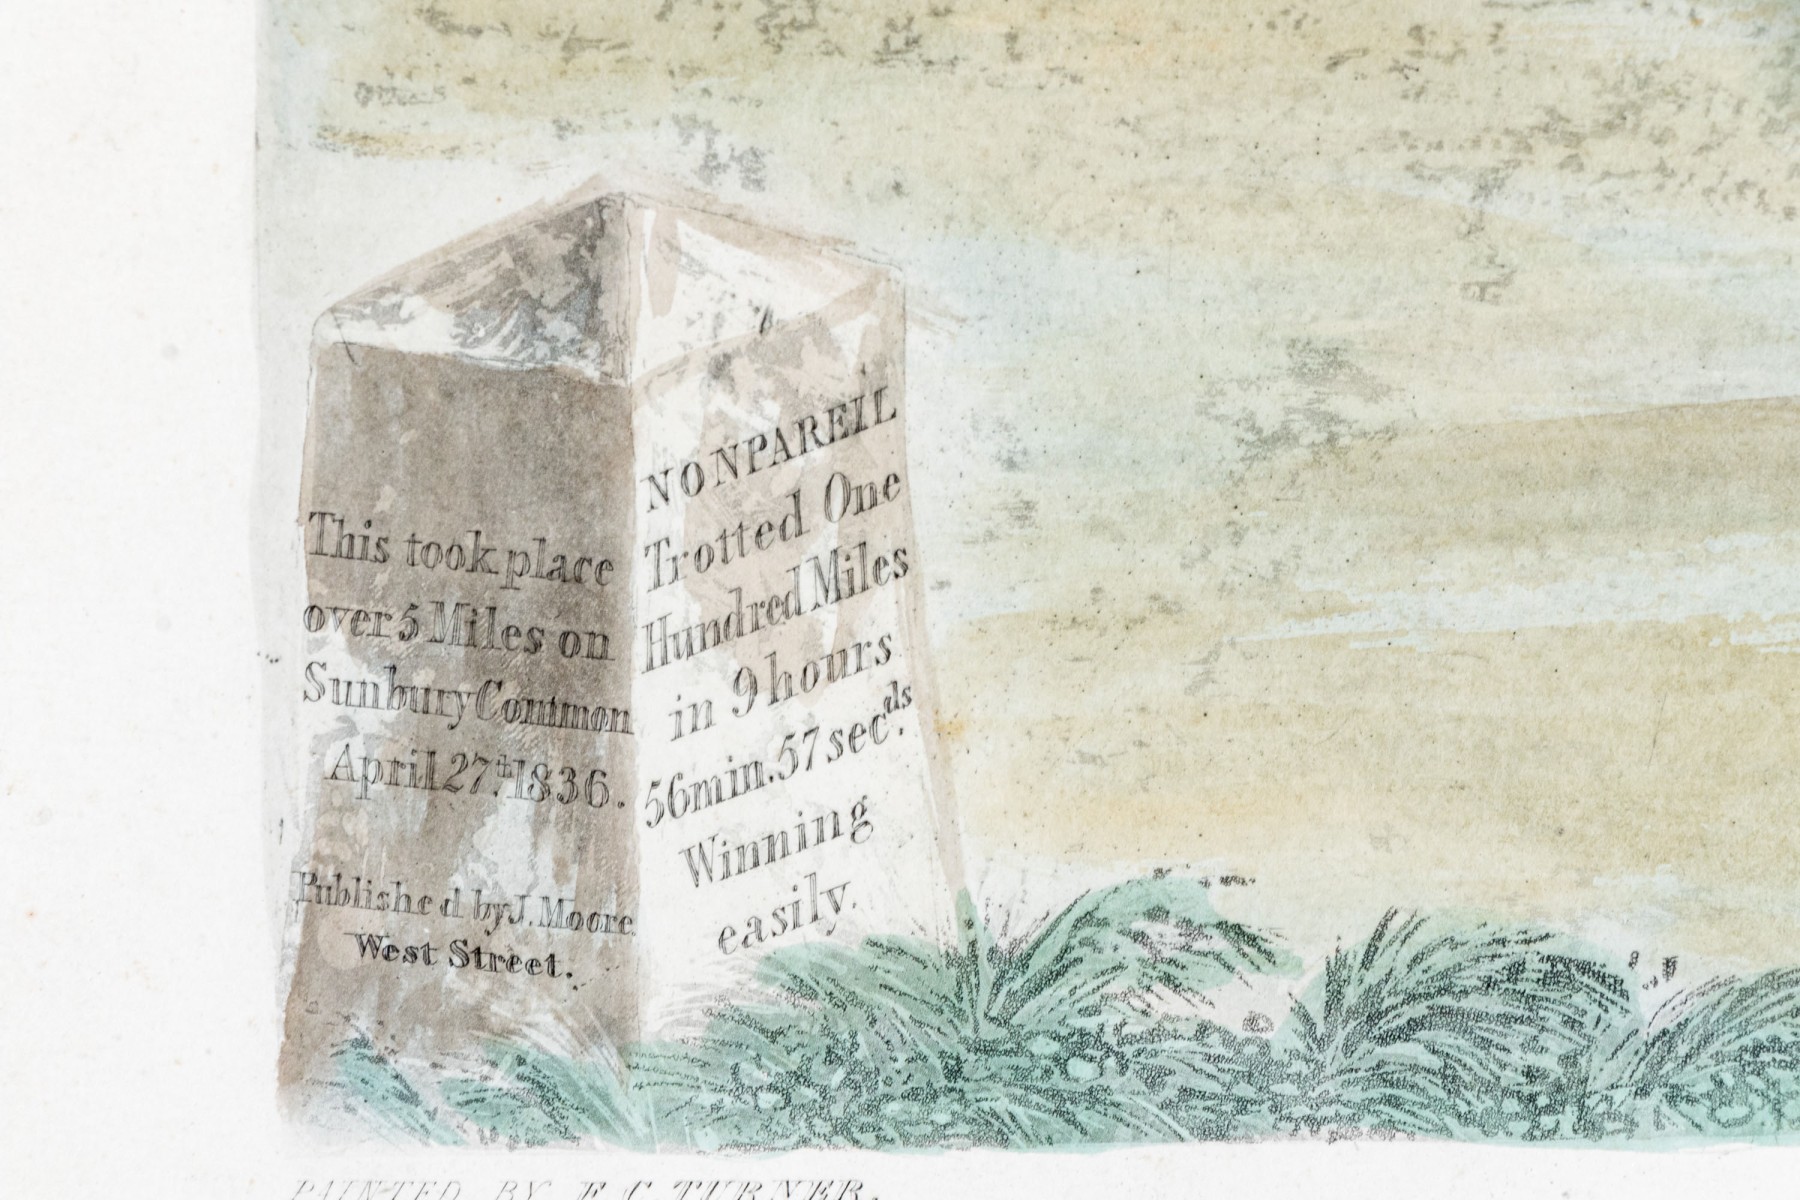 This took place
over 5 Miles on
Sunbury Common
April 27th. 1836.
Published by J. Moore.
West Street.
NONPAREIL
Trotted One
Hundred Miles
in 9 hours
56 min. 57 secds.
Winning
easily.
PAINTED BY F. C. TURNER.